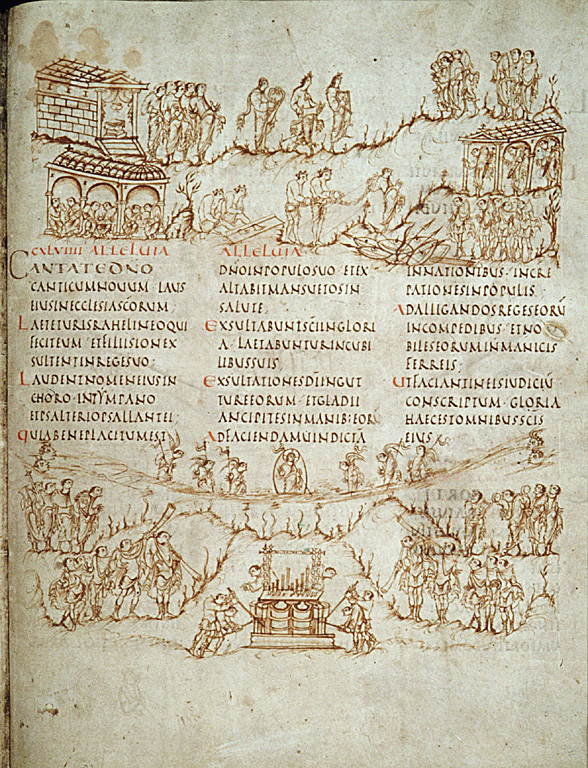 CXLVIIII ALLELUIA
CANTATE DNO
CANTICUM NOUUM LAUS
EIUS IN ECCLESIA SCORUM
LAETETUR ISRAHEL IN EO QUI
FECIT EUM ET FILII SION EX
SULTENT IN REGE SUO
LAUDENT NOMEN EIUS IN
CHORO · IN TYMPANO
ET PSALTERIO PSALLANT EI
QUIA BENE PLACITUM EST
ALLELUIA
DNO IN POPULO SUO ET EX
ALTABIT MANSUETOS IN
SALUTE
EXSULTABUNT SCI IN GLORI
A · LAETABUNTUR IN CUBI
LIBUS SUIS
EXSULTATIONES DI IN GUT
TURE EORUM · ET GLADII
ANCIPITES IN MANIB · EOR
AD FACIENDAM UINDICTA
IN NATIONIBUS · INCRE
PATIONES IN POPULIS
AD ALLIGANDOS REGES EORŪ
IN COMPEDIBUS · ET NO
BILES EORUM IN MANICIS
FERREIS ·
UT FACIANT IN EIS IUDICIŪ
CONSCRIPTUM · GLORIA
HAEC EST OMNIBUS SCIS
EIUS